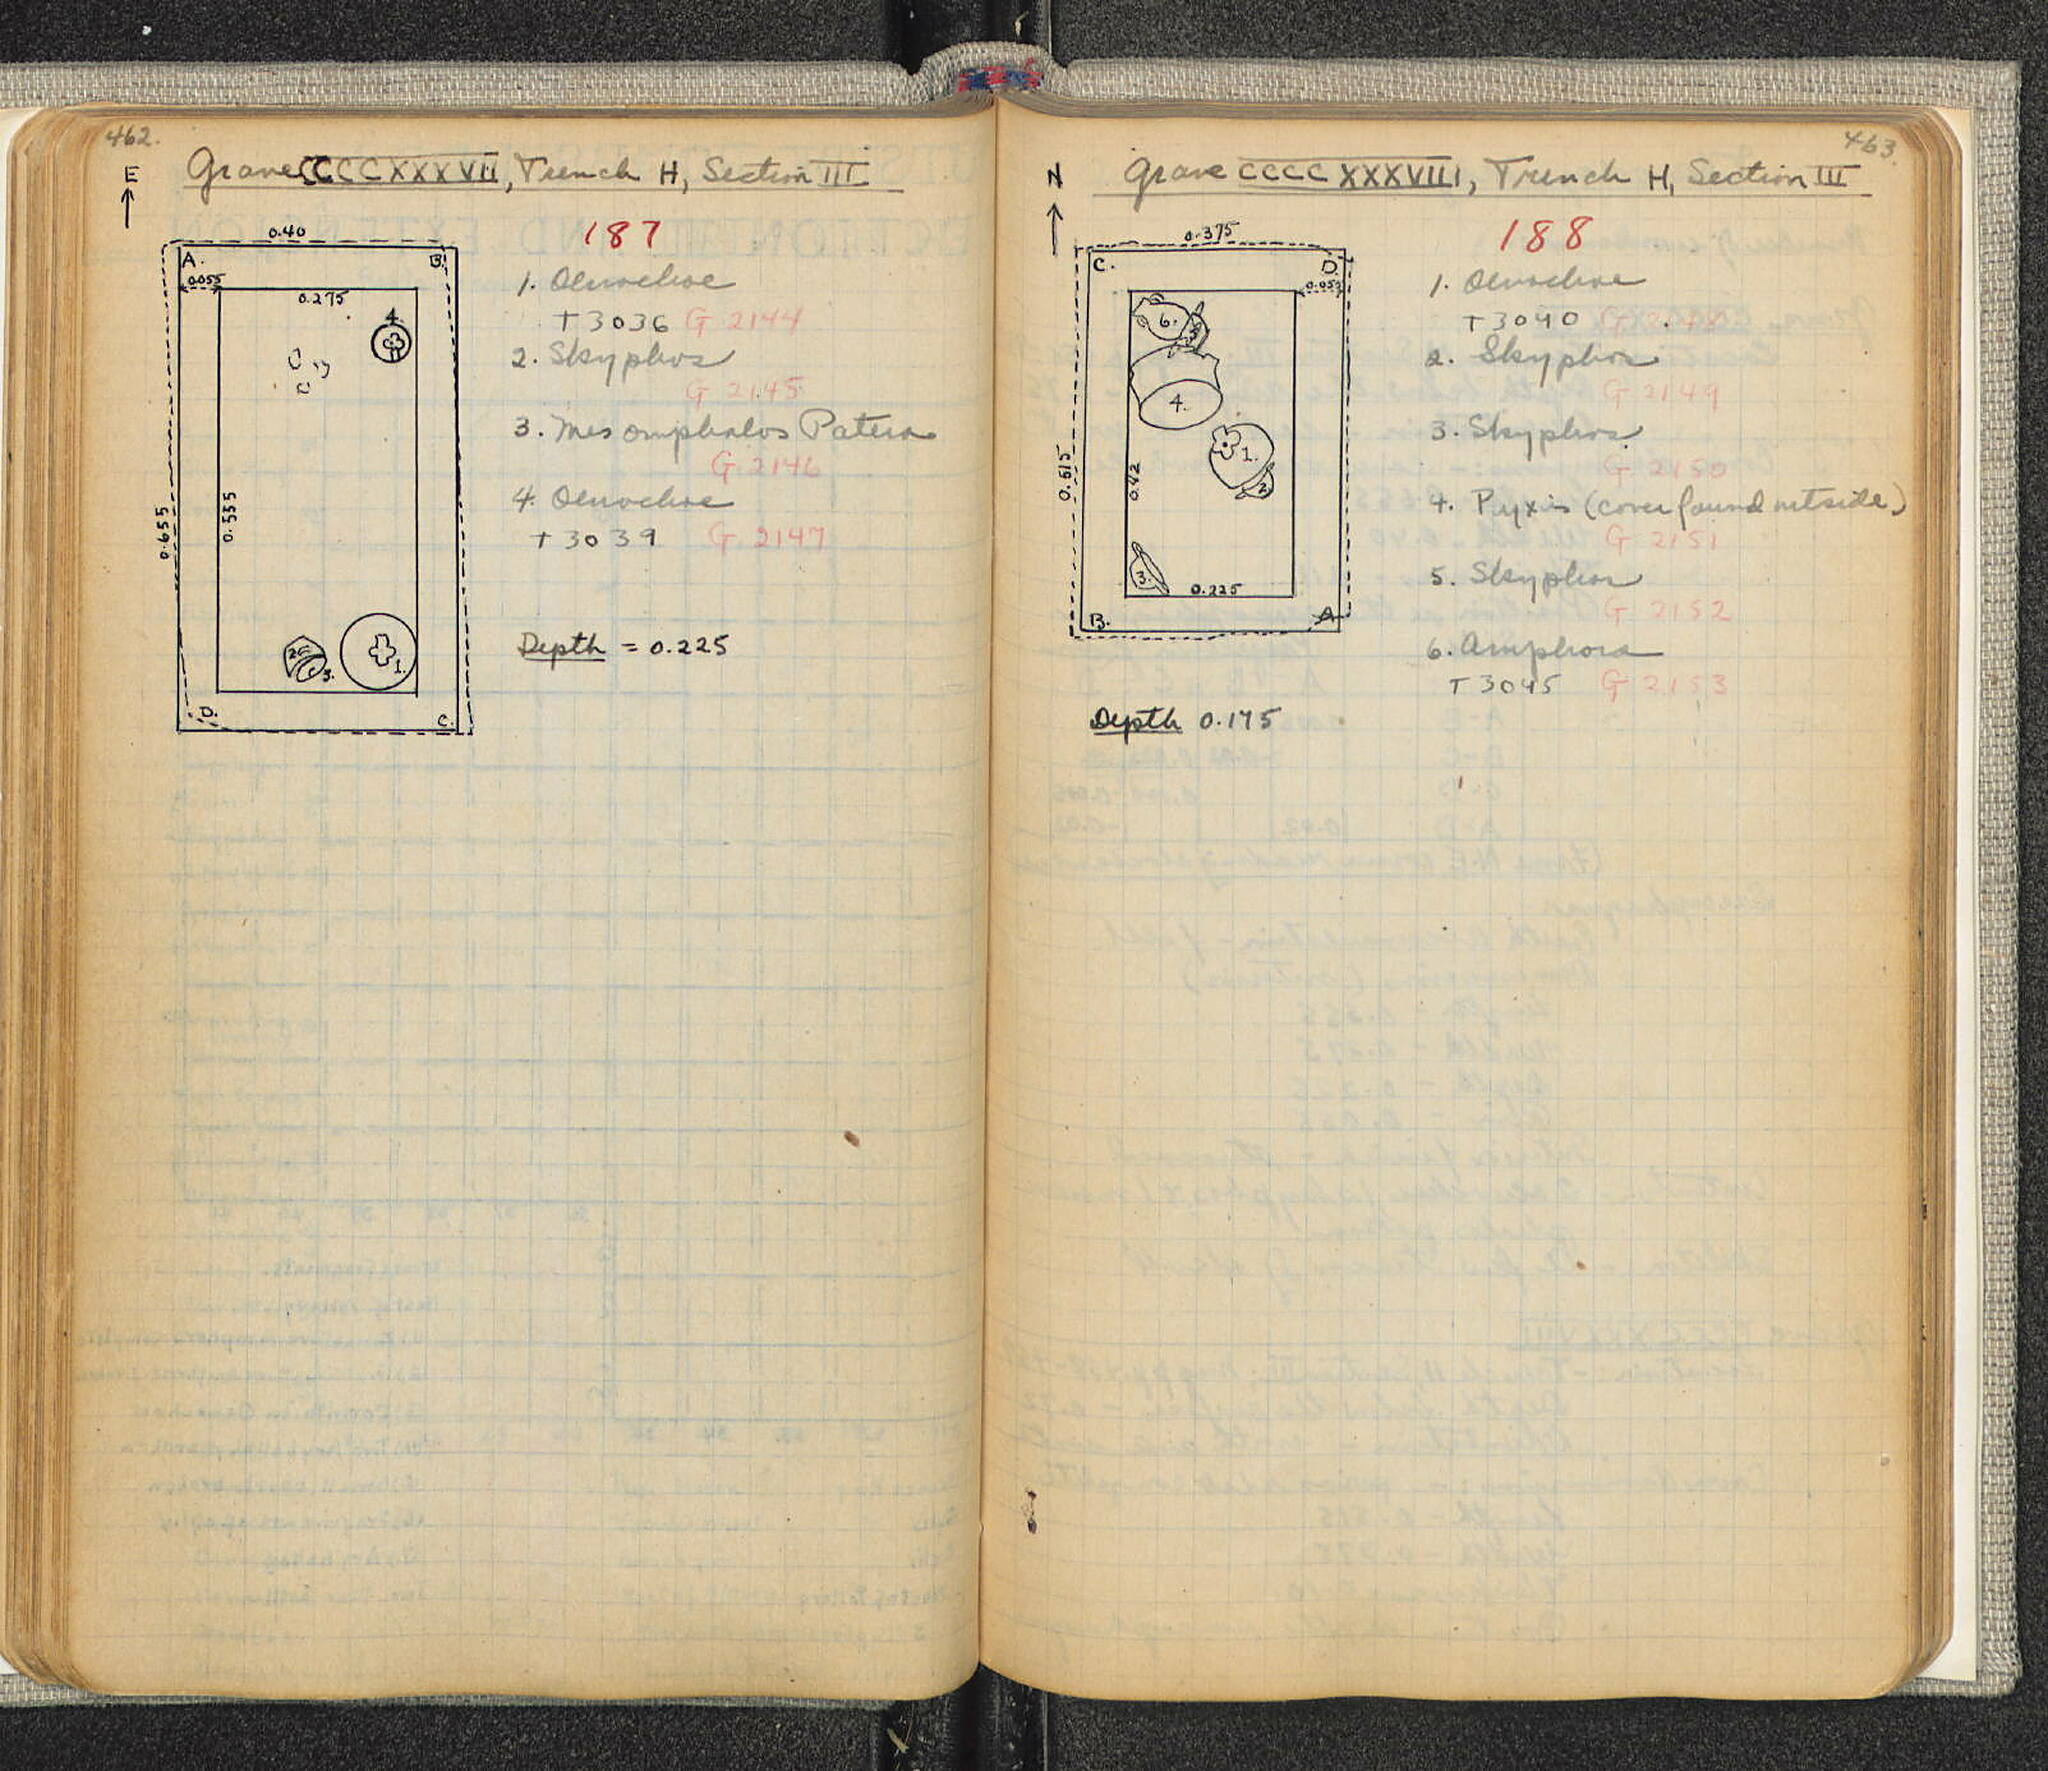 462.
E
Grave CCCCXXXVII, Trench H, Section III
187
0.40
A.
B.
0.055
0.275
4.
0.655
0.535
2
3.
1.
D.
C.
1. Oenochoe
T3036 G 2144
2. Skyphos
G 2145
3. Mesomphalos Patera
G 2146
4. Oenochoe
T3039 G 2147
Depth = 0.225
463.
N
Grave CCCCXXXVIII, Trench H, Section III
188
0.375
C.
D.
0.055
6.
5
4.
1.
2
0.515
0.42
3.
0.225
B.
A
1. Oenochoe
T3040 G 2148
2. Skyphos
G 2149
3. Skyphos
G 2150
4. Pyxis (cover found outside)
G 2151
5. Skyphos
G 2152
6. Amphora
T3045 G 2153
Depth 0.175